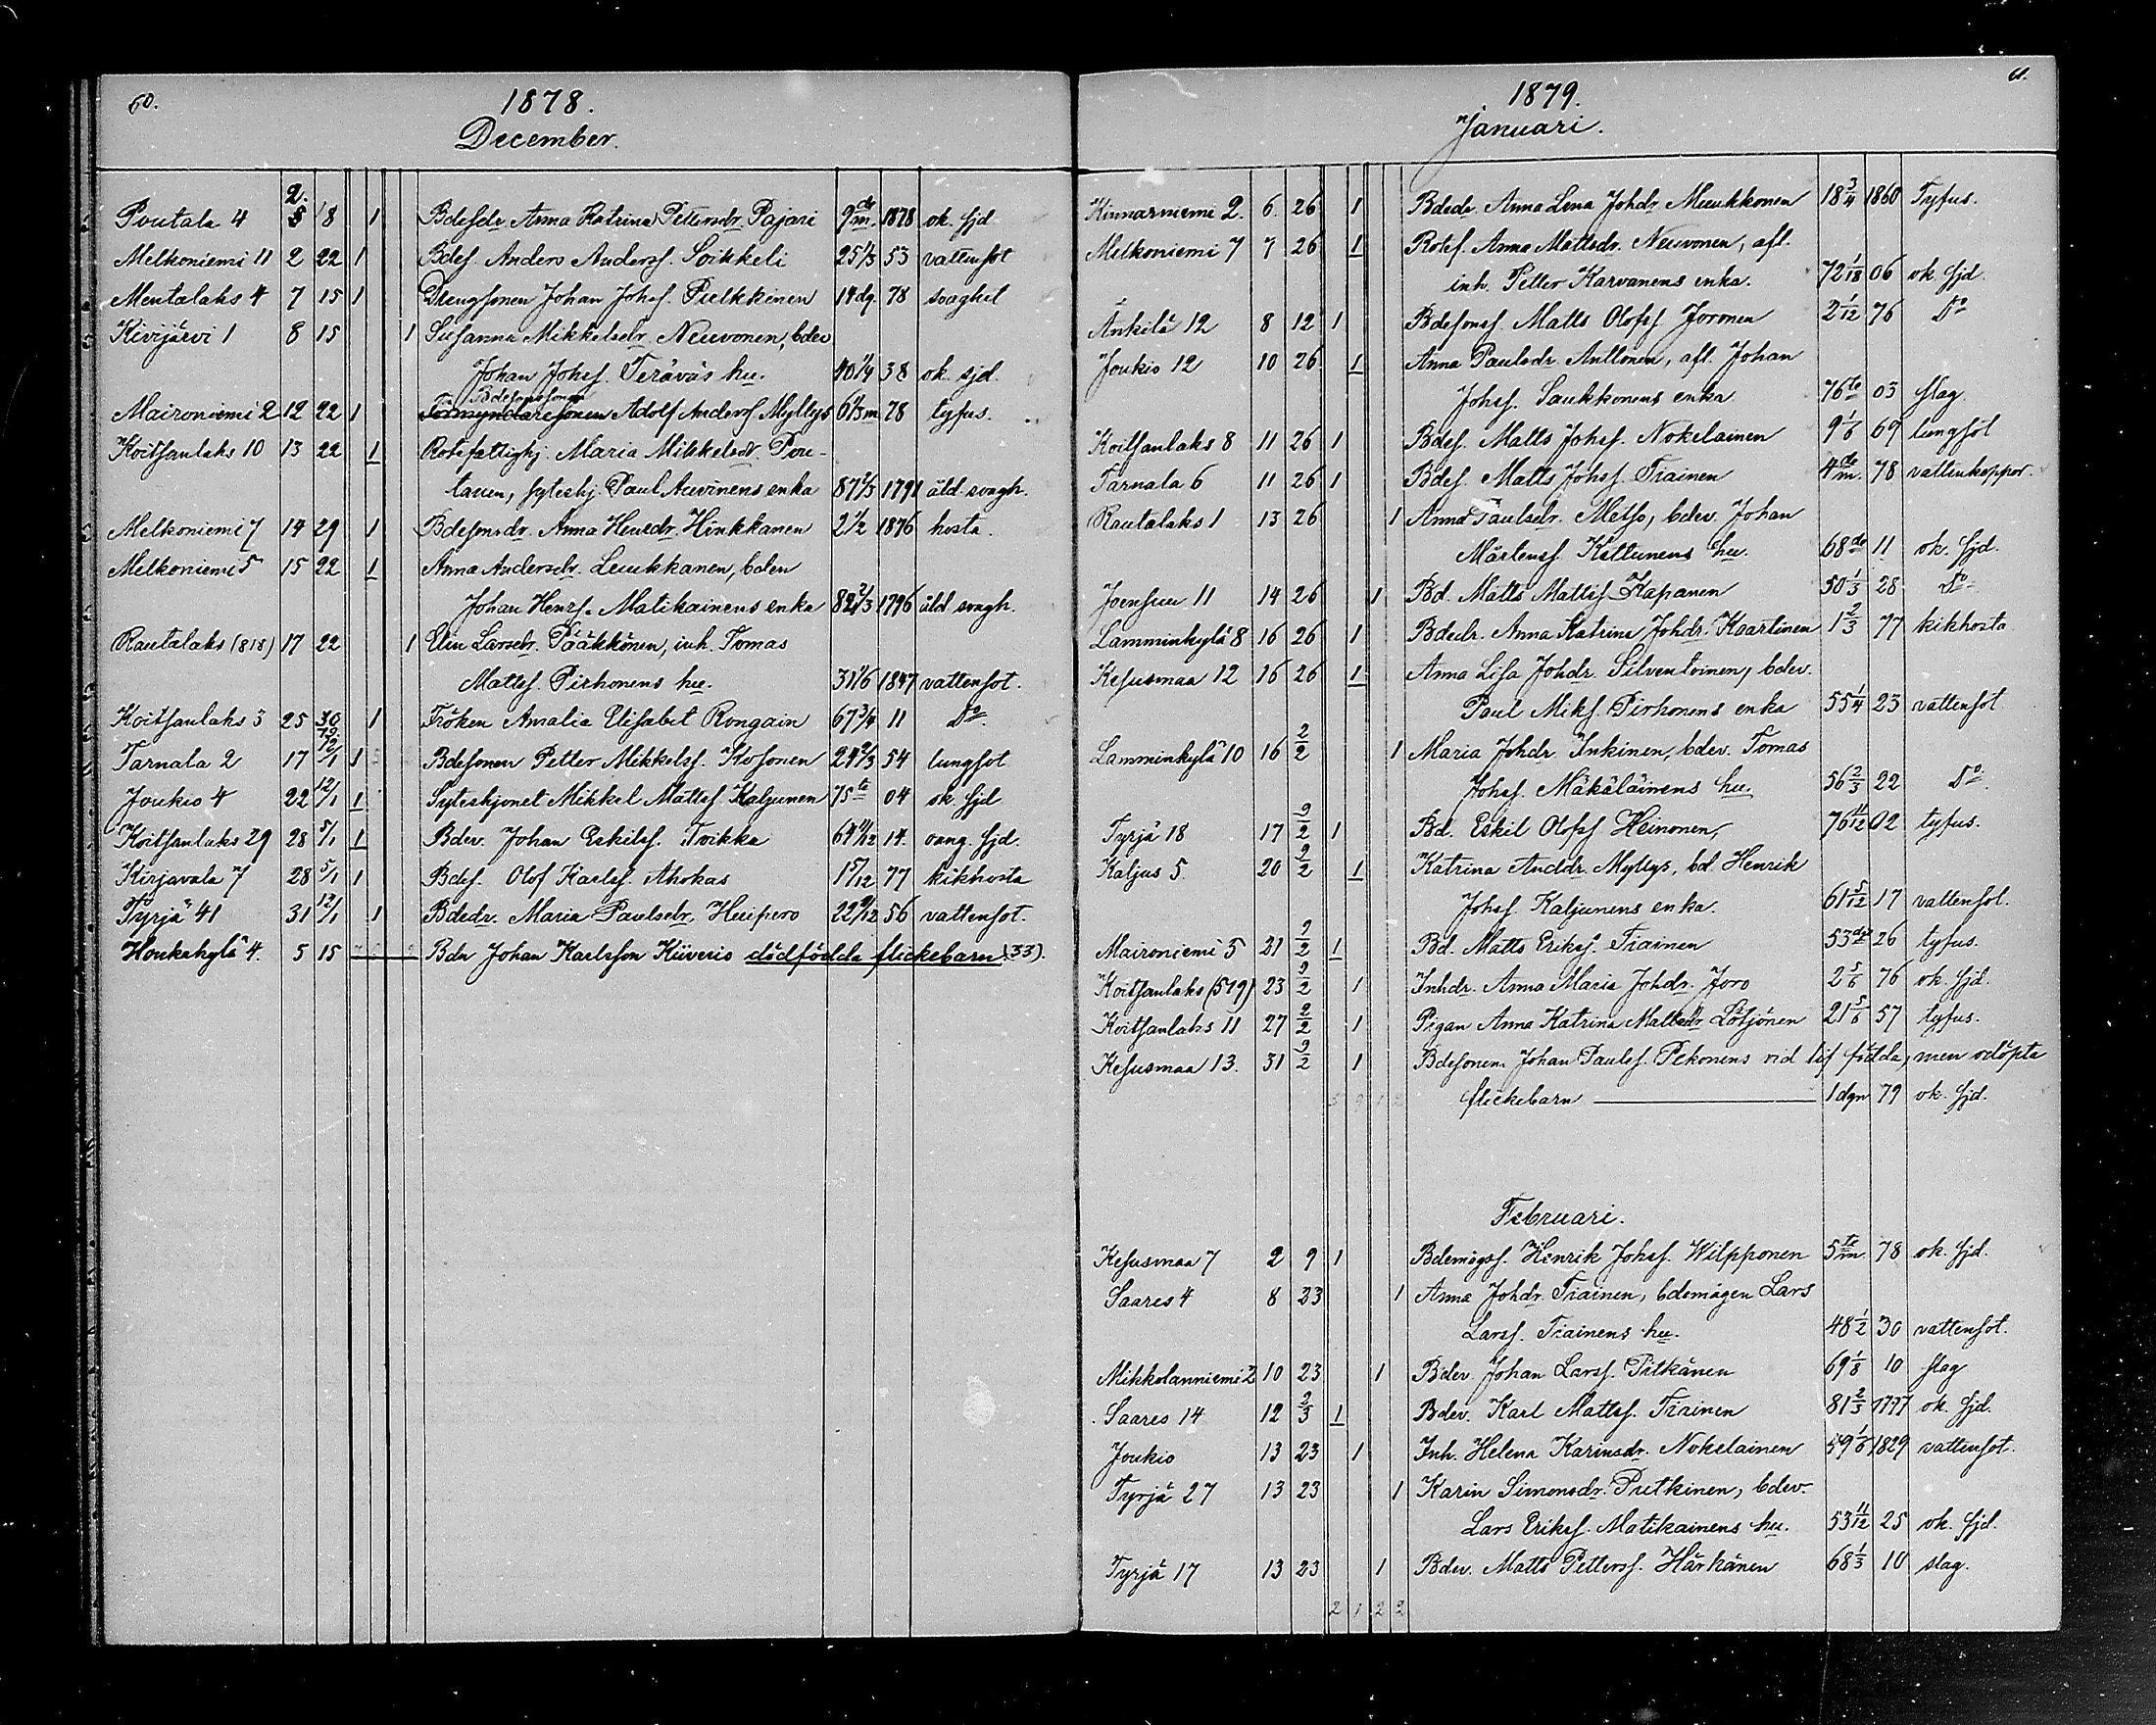 60.
1878.
December.
Poutala 4 2. 8 18 1 Bdesdr. Anna Katrina Pettersdr. Pajari 9de m. 1878 ok. sjd
Melkoniemi 11 2 22 1 Bdes. Anders Anderss. Soikkeli 25 1/3 53 vattensot
Mentalaks 4 7 15 1 Drengsonen Johan Johss. Pulkkinen 14 dg. 78 svaghet
Kivijärvi 1 8 15 1 Susanna Mikkelsdr. Neuvonen, bdev
Johan Johss. Teräväs hu. 40 1/4 38 ok. sjd.
Bdesonsonen
Maironiemi 2 12 22 1 Adolf Anderss Myllys 6 1/3 m 78 tyfus.
Koitsanlaks 10 13 22 1 Rotefattighj. Maria Mikkelsdr. Pou-
tanen, syteshj. Paul Auvinens enka 87 2/3 1791 åld. svagh.
Melkoniemi 7 14 29 1 Bdesonsdr. Anna Henrdr. Hinkkanen 2 1/2 1876 hosta.
Melkoniemi 5 15 22 1 Anna Andersdr. Leukkanen, bden
Johan Henrs. Matikainens enka 82 2/3 1796 åld. svagh.
Rautalaks (818) 17 22 1 Elin Larsdr. Pääkkönen, inh. Tomas
Mattss. Pirhonens hu. 31 1/6 1847 vattensot.
Koitsanlaks 3 25 30 1 Fröken Amalia Elisabet Rongain 67 3/4 11 Do
79.
Tarnala 2 17 12/1 1 Bdesonen Petter Mikkelss. Kosonen 24 2/3 54 lungsot
Joukio 4 22 12/1 1 Syteshjonet Mikkel Mattss. Kaljunen 75te 04 ok. sjd
Koitsanlaks 29 28 5/1 1 Bdev. Johan Eskilss. Toikka 64 11/12 14. ong. sjd.
Kirjavala 7 28 5/1 1 Bdes. Olof Karlss. Ahokas 1 5/12 77 kikhosta
Tyrjä 41 31 12/1 1 Bdedr. Maria Paulsdr. Huipero 22 9/12 56 vattensot.
Houkakylä 4. 5 15 Bdn Johan Karlsson Kiiveris dödfödda flickebarn (33).
61.
1879.
Januari.
Kinnarniemi 2. 6. 26 1 Bdedr. Anna Lena Johdr. Muukkonen 18 3/4 1860 Tyfus.
Melkoniemi 7 7 26 1 Rotef. Anna Mattsdr. Neuvonen, afl.
inh. Petter Karvanens enka. 72 1/12 06 ok. sjd.
Ankilä 12 8 12 1 Bdesonss. Matts Olofss Joronen 2 1/12 76 Do
Joukio 12 10 26 1 Anna Paulsdr. Anttonen, afl. Johan
Johss. Saukkonens enka 76te 03 slag.
Koitsanlaks 8 11 26 1 Bdes. Matts Johss. Nokelainen 9 1/6 69 lungsot
Tarnala 6 11 26 1 Bdes. Matts Johss. Tiainen 4de m. 78 vattenkoppor.
Rautalaks 1 13 26 1 Anna Paulsdr. Metso, bdev. Johan
Mårtenss. Kettunens hu. 68de 11 ok. sjd.
Joensuu 11 14 26 1 Bd. Matts Mattss Kapanen 50 1/3 28 Do
Lamminkylä 8 16 26 1 Bdedr. Anna Katrina Johdr. Kaartinen 1 2/3 77 kikhosta
Kesusmaa 12 16 26 1 Anna Lisa Johdr. Silventoinen, bdev.
Paul Miks. Pirhonens enka 55 1/4 23 vattensot
Lamminkylä 10 16 2/2 1 Maria Johdr. Inkinen, bdev. Tomas
Johss. Mäkäläinens hu. 56 2/3 22 Do
Tyrjä 18 17 9/2 1 Bd. Eskil Olofss Heinonen, 76 11/12 02 tyfus.
Kaljus 5. 20 9/2 1 Katrina Anddr. Myllys, bd. Henrik
Johss. Kaljunens enka. 61 5/12 17 vattensot.
Maironiemi 5 21 9/2 1 Bd. Matts Erikss. Tiainen 53de 26 tyfus.
Koitsanlaks (519) 23 9/2 1 Inhdr. Anna Maria Johdr. Joro 2 5/6 76 ok. sjd.
Koitsanlaks 11 27 2/2 1 Pigan Anna Katrina Mattsdr. Lötjönen 21 5/6 57 tyfus.
Kesusmaa 13. 31 9/2 1 Bdesonen Johan Paulss. Pekonens vid lif födda, men odöpta
flickebarn 1 dgn 79 ok. sjd.
Februari.
Kesusmaa 7 2 9 1 Bdemågss. Henrik Johss. Wilpponen 5te m. 78 ok. sjd.
Saares 4 8 23 1 Anna Johdr. Tiainen, bdemågen Lars
Larss. Tiainens hu. 48 1/2 30 vattensot.
Mikkolanniemi 2 10 23 1 Bdev. Johan Larss. Pitkänen 69 1/8 10 slag
Saares 14 12 2/3 1 Bdev. Karl Mattss. Tiainen 81 2/3 1797 ok. sjd.
Joukio 13 23 1 Inh. Helena Karinsdr. Nokelainen 49 1/6 1829 vattensot.
Tyrjä 27 13 23 1 Karin Simonsdr. Putkinen, bdev.
Lars Erikss. Matikainens hu. 53 11/12 25 ok. sjd.
Tyrjä 17 13 23 1 Bdev. Matts Petterss. Härkänen 68 1/3 10 slag.
2 1 2 2